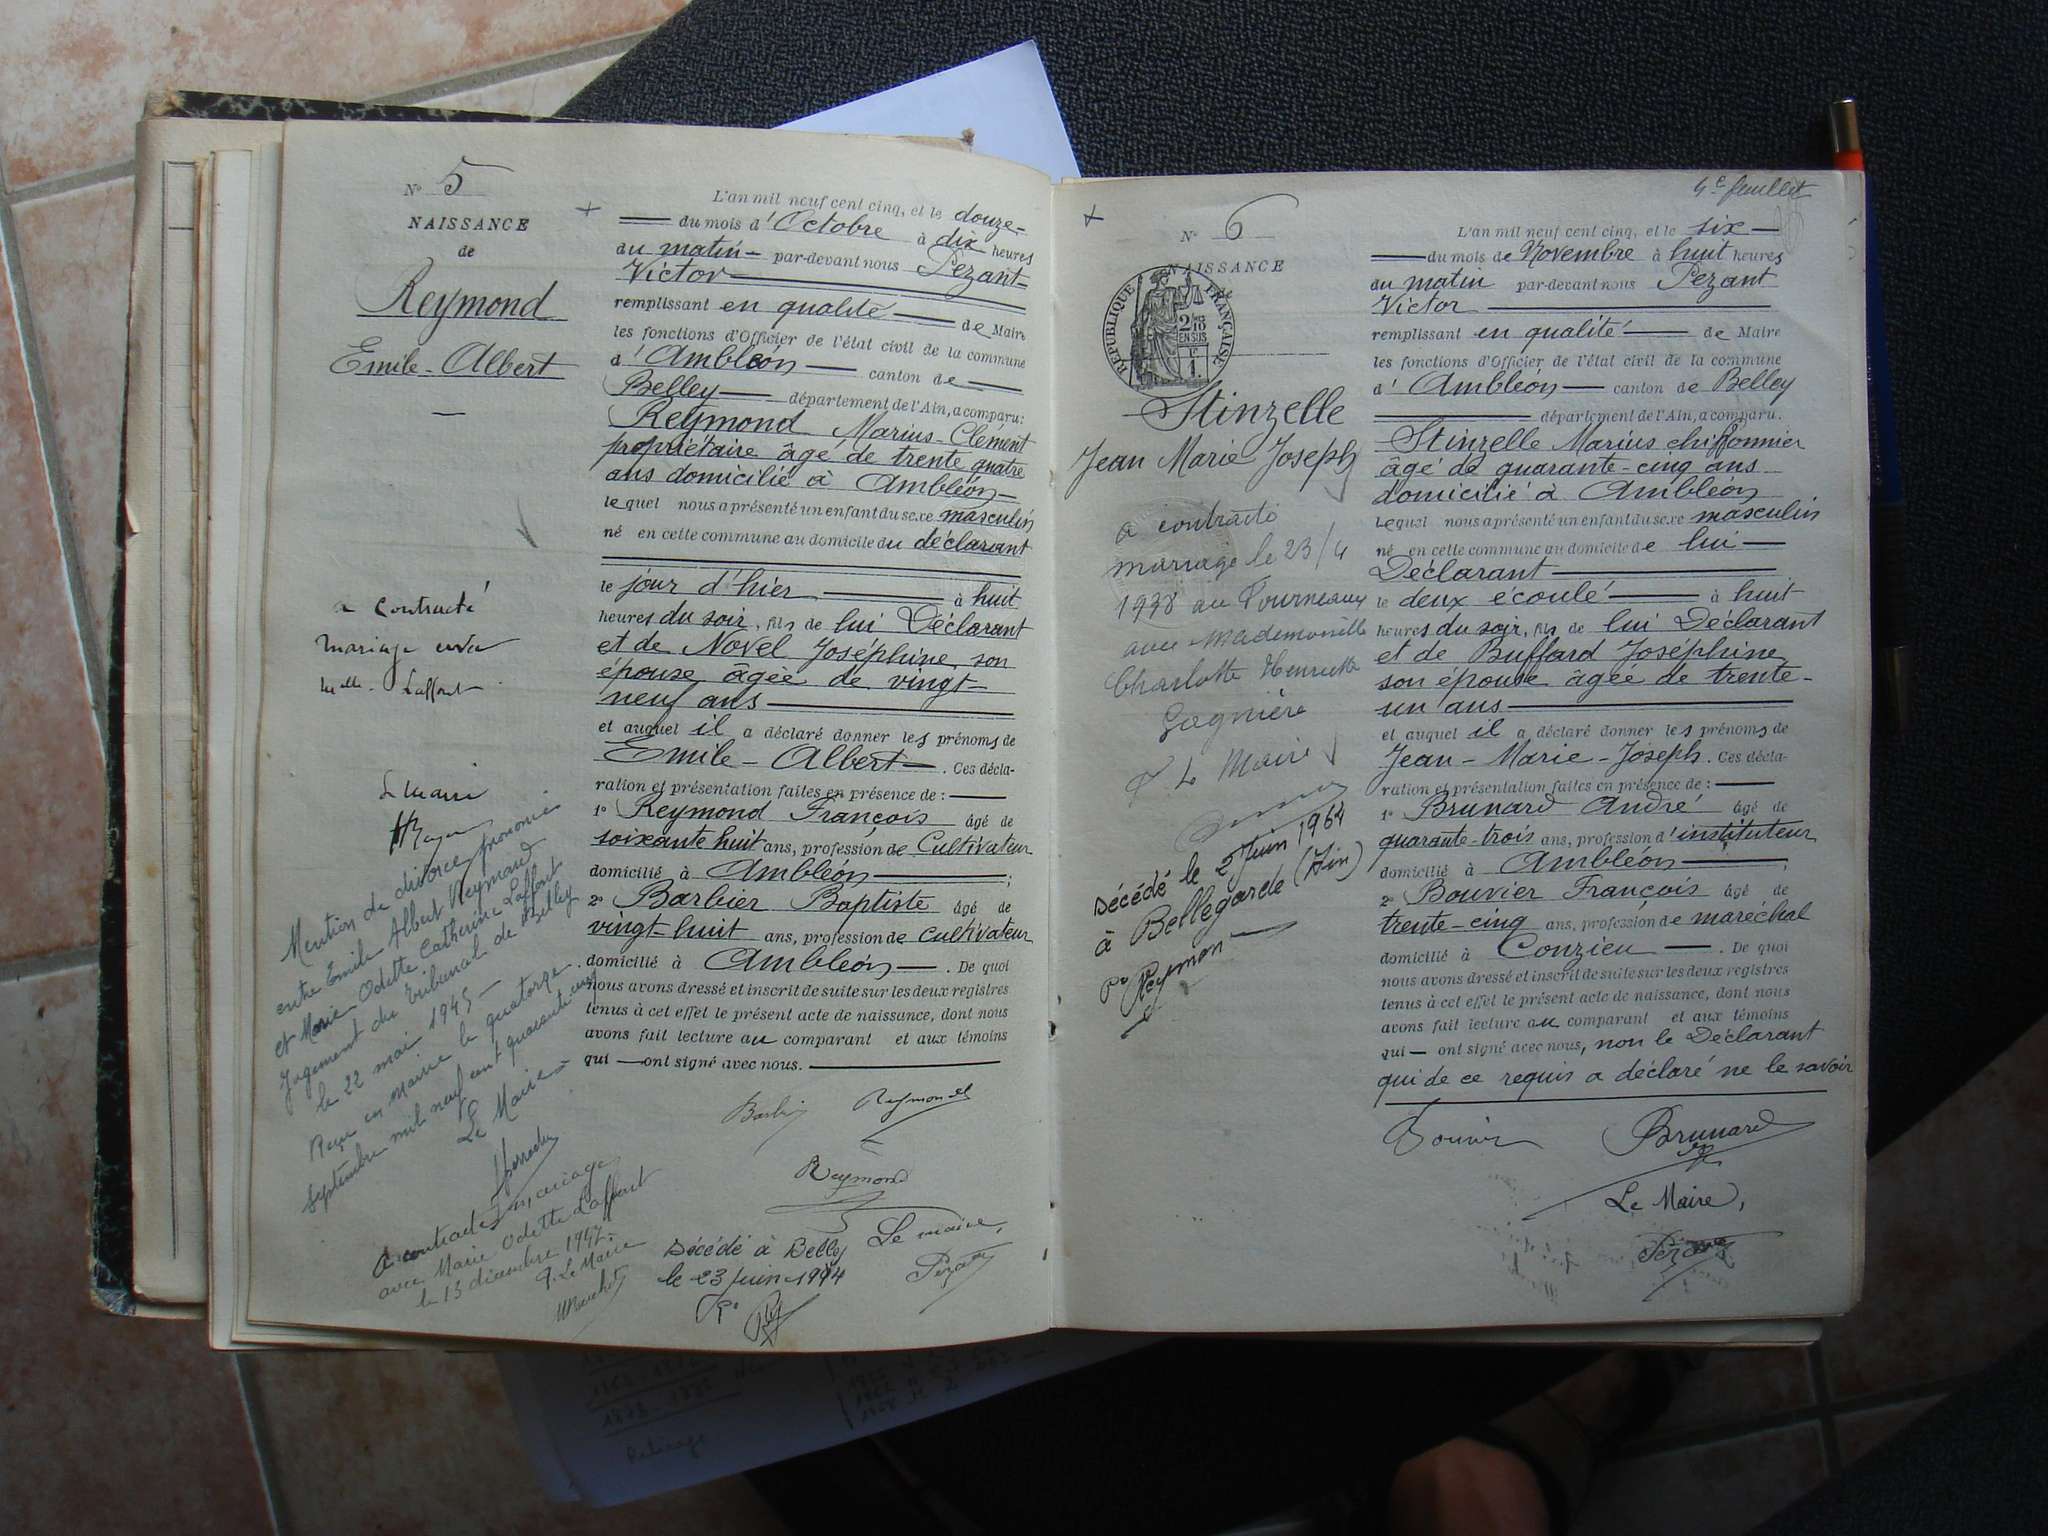 N° 5
NAISSANCE
de
Reymond
Emile-Albert
a contracté
mariage avec
Melle Laffont
Le Maire
Mention de divorce prononcé
entre Emile Albert Reymond
et Marie Odette Catherine Laffont
Jugement du tribunal de Belley
le 22 mai 1945
Reçu en Mairie le quatorze
septembre mil neuf cent quarante cinq
Le Maire
A contracté mariage
avec Marie Odette Laffont
le 13 décembre 1947.
P. Le Maire
L'an mil neuf cent cinq, et le douze
du mois d'Octobre à dix heures
du matin par-devant nous Pezant
Victor
remplissant en qualité de Maire
les fonctions d'Officier de l'état civil de la commune
d'Ambléon canton de
Belley département de l'Ain, a comparu:
Reymond Marius-Clément
propriétaire âgé de trente quatre
ans domicilié à Ambléon
lequel nous a présenté un enfant du sexe masculin
né en cette commune au domicile du déclarant
le jour d'hier à huit
heures du soir, fils de lui Déclarant
et de Novel Joséphine son
épouse âgée de vingt-
neuf ans
et auquel il a déclaré donner les prénoms de
Emile-Albert. Ces décla-
ration et présentation faites en présence de :
1° Reymond François âgé de
soixante huit ans, profession de Cultivateur
domicilié à Ambléon ;
2° Barbier Baptiste âgé de
vingt-huit ans, profession de cultivateur
domicilié à Ambléon. De quoi
nous avons dressé et inscrit de suite sur les deux registres
tenus à cet effet le présent acte de naissance, dont nous
avons fait lecture au comparant et aux témoins
qui ont signé avec nous.
Reymond
Reymond
Le maire,
Pezant
Décédé à Belley
le 23 Juin 1994
4e feuillet
N° 6
NAISSANCE
RÉPUBLIQUE FRANÇAISE
Stinzelle
Jean Marie Joseph
a contracté
mariage le 23/4
1938 au Fourneaux
avec Mademoiselle
Charlotte Henriette
Gagnière
P. Le Maire
Décédé le 2 Juin 1964
à Bellegarde (Ain)
Po Reymon
L'an mil neuf cent cinq, et le six
du mois de Novembre à huit heures
du matin par-devant nous Pezant
Victor
remplissant en qualité de Maire
les fonctions d'Officier de l'état civil de la commune
d'Ambléon canton de Belley
département de l'Ain, a comparu.
Stinzelle Marius chiffonnier
âgé de quarante-cinq ans
domicilié à Ambléon
Lequel nous a présenté un enfant du sexe masculin
né en cette commune au domicile de lui
Déclarant
le deux écoulé à huit
heures du soir, fils de lui Déclarant
et de Buffard Joséphine
son épouse âgée de trente-
un ans
et auquel il a déclaré donner les prénoms de
Jean-Marie-Joseph. Ces décla-
ration et présentation faites en présence de :
1° Brunard André âgé de
quarante-trois ans, profession d'instituteur
domicilié à Ambléon ;
2° Bouvier François âgé de
trente-cinq ans, profession de maréchal
domicilié à Conzieu. De quoi
nous avons dressé et inscrit de suite sur les deux registres
tenus à cet effet le présent acte de naissance, dont nous
avons fait lecture au comparant et aux témoins
qui ont signé avec nous, non le Déclarant
qui de ce requis a déclaré ne le savoir
Bouvier
Brunard
Le Maire,
Pezant